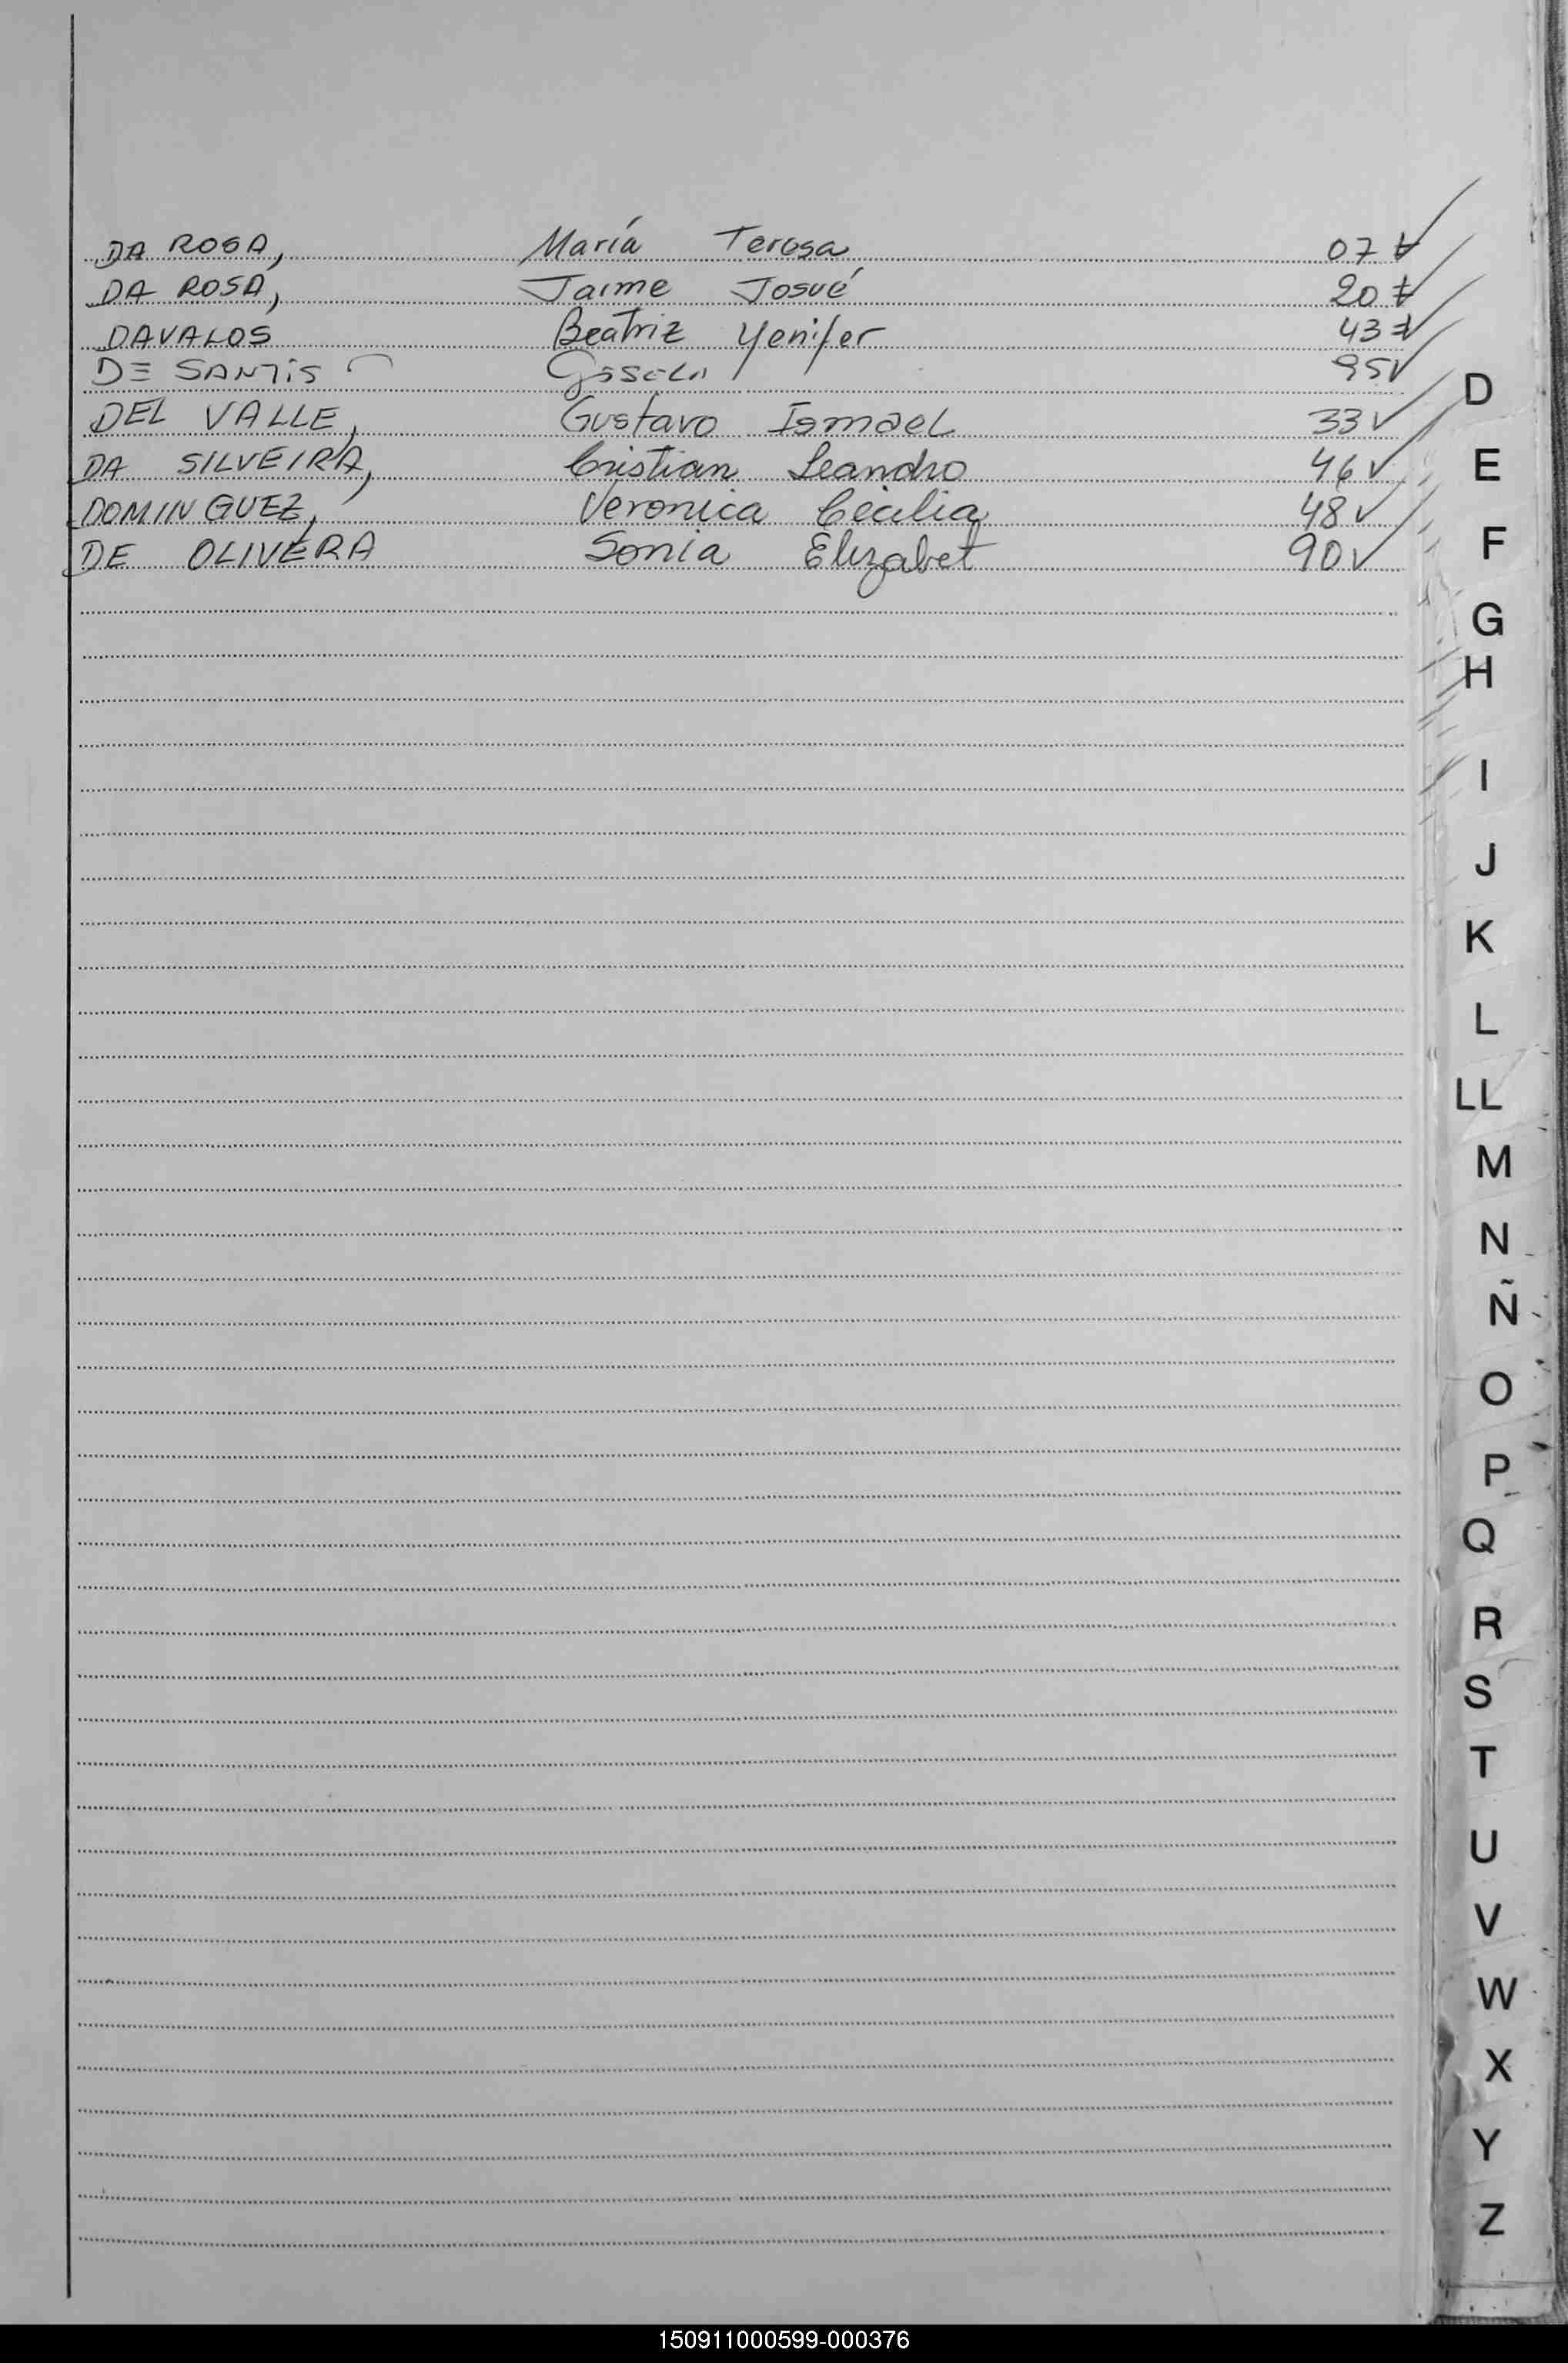 DA ROSA, María Teresa 07 ✓
DA ROSA, Jaime Josué 20 ✓
DAVALOS Beatriz Yenifer 43 ✓
DE SANTiS 95 ✓
DEL VALLE, Gustavo Ismael 33 ✓
DA SILVEIRA, Cristian Leandro 46 ✓
DOMINGUEZ, Veronica Cecilia 48 ✓
DE OLIVERA Sonia Elizabet 90 ✓
D
E
F
G
H
I
J
K
L
LL
M
N
Ñ
O
P
Q
R
S
T
U
V
W
X
Y
Z
150911000599-000376